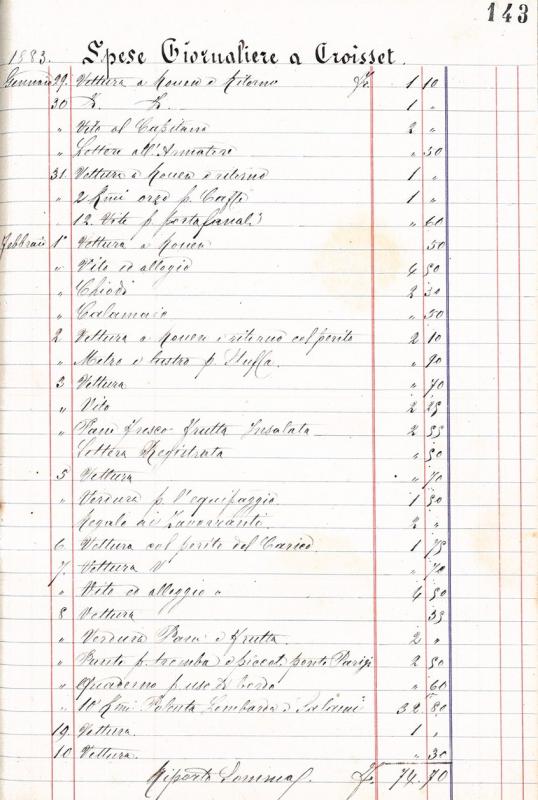 143
1883. Spese Giornaliere a Croisset.
Gennaio 29. Vettura a Rouen e Ritorno Fr. 1 10
30 D. D. 1 "
" Vito al Capitano 2 "
" Lettera all'Armatore " 50
31. Vettura a Rouen e ritorno 1 "
" 2 Kmi orzo p. Caffè 1 "
" 12. Vite p portafanali " 60
Febbraio 1° Vettura a Rouen 50
" Vito ed allogio 4 50
" Chiodi 2 30
" Calamaio " 50
2 Vettura a Rouen e ritorno col perito 2 10
" Metro e lastro p. Stuffa. " 90
3 Vettura " 70
" Vito 2 25
" Pane fresco Frutta Insalata 2 55
Lettera Registrata " 50
5 Vettura " 70
" Verdura p l'equipaggio 1 50
Regalo ai Zavorranti. 2 "
6. Vettura col perito del Carico. 1 75
7. Vettura " 70
" Vito ed alloggio " 4 50
8 Vettura 35
" Verdura Pane e Frutta. 2 "
" p. tromba ponte Parigi 2 50
" Quaderno p uso di bordo " 60
" 10 Kmi Polenta Lombarda e Salami 32. 80
19. Vettura. 1 "
10 Vettura. " 30
Riporto Somma. Fr. 74. 70